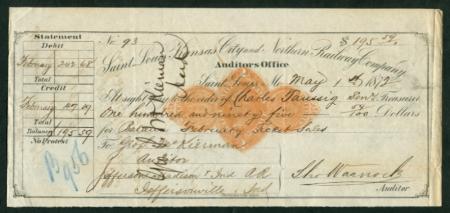 Statement
Debit
February 242 68
Total
Credit
February 47 09
Total
Balance 195 59
No Protest
No 93
$195 59
Saint Louis Kansas City and Northern Railway Company
Auditors Office
Saint Louis Mo May 1st 1872
At sight pay to the order of Charles Taussig Treasurer
One hundred and ninety five 59/100 Dollars
for Balance February Ticket Sales
To Kiernan
Auditor
Jefferson Madison & Ind RR
Jeffersonville Ind
Auditor